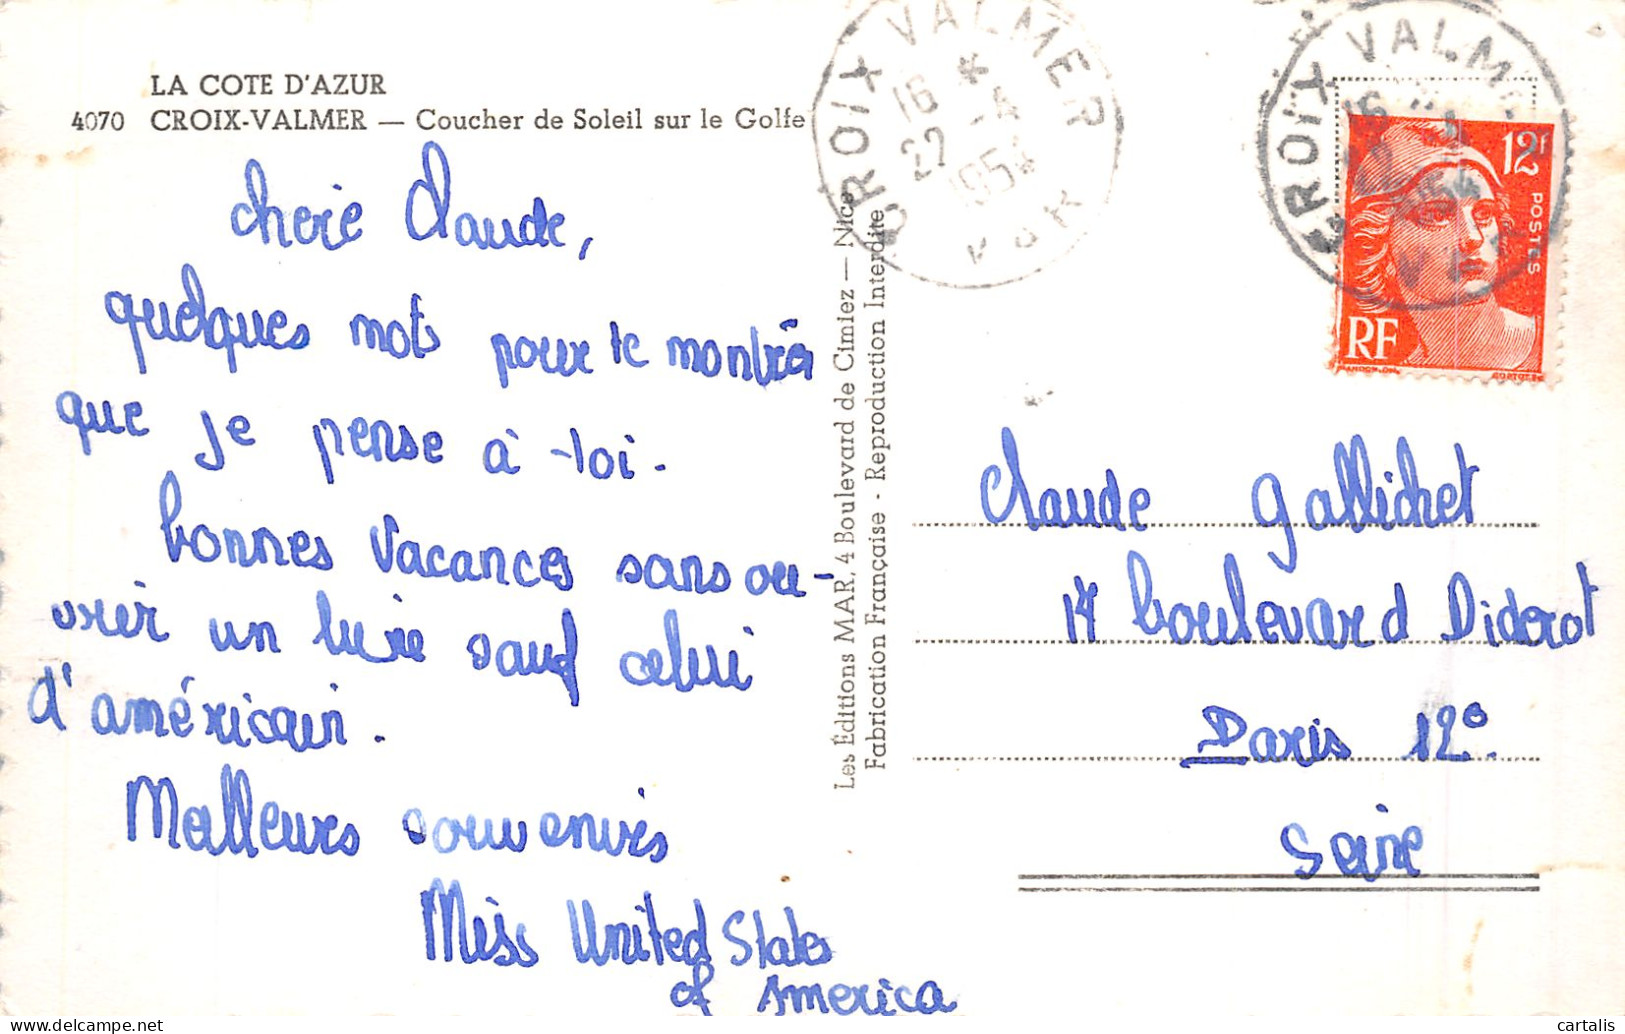 LA COTE D'AZUR
4070 CROIX-VALMER — Coucher de Soleil sur le Golfe
cherie Claude,
quelques mots pour te montrer
que je pense à toi.
bonnes Vacances sans ou-
vrir un livre sauf celui
d'américain.
Meilleurs souvenirs
Miss United States
of America
Les Éditions MAR, 4 Boulevard de Cimiez — Nice
Fabrication Française - Reproduction Interdite
CROIX VALMER
16 * 22 -4 1954
VAR
CROIX VALMER
16
22
1954
VAR
12f
POSTES
RF
Claude Gallichet
17 boulevard Diderot
Paris 12°.
Seine
cartalis
delcampe.net